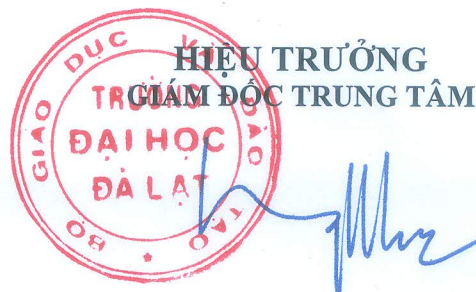 HIỆU TRƯỞNG
GIÁM ĐỐC TRUNG TÂM
BỘ GIÁO DỤC VÀ ĐÀO TẠO
TRƯỜNG
ĐẠI HỌC
ĐÀ LẠT